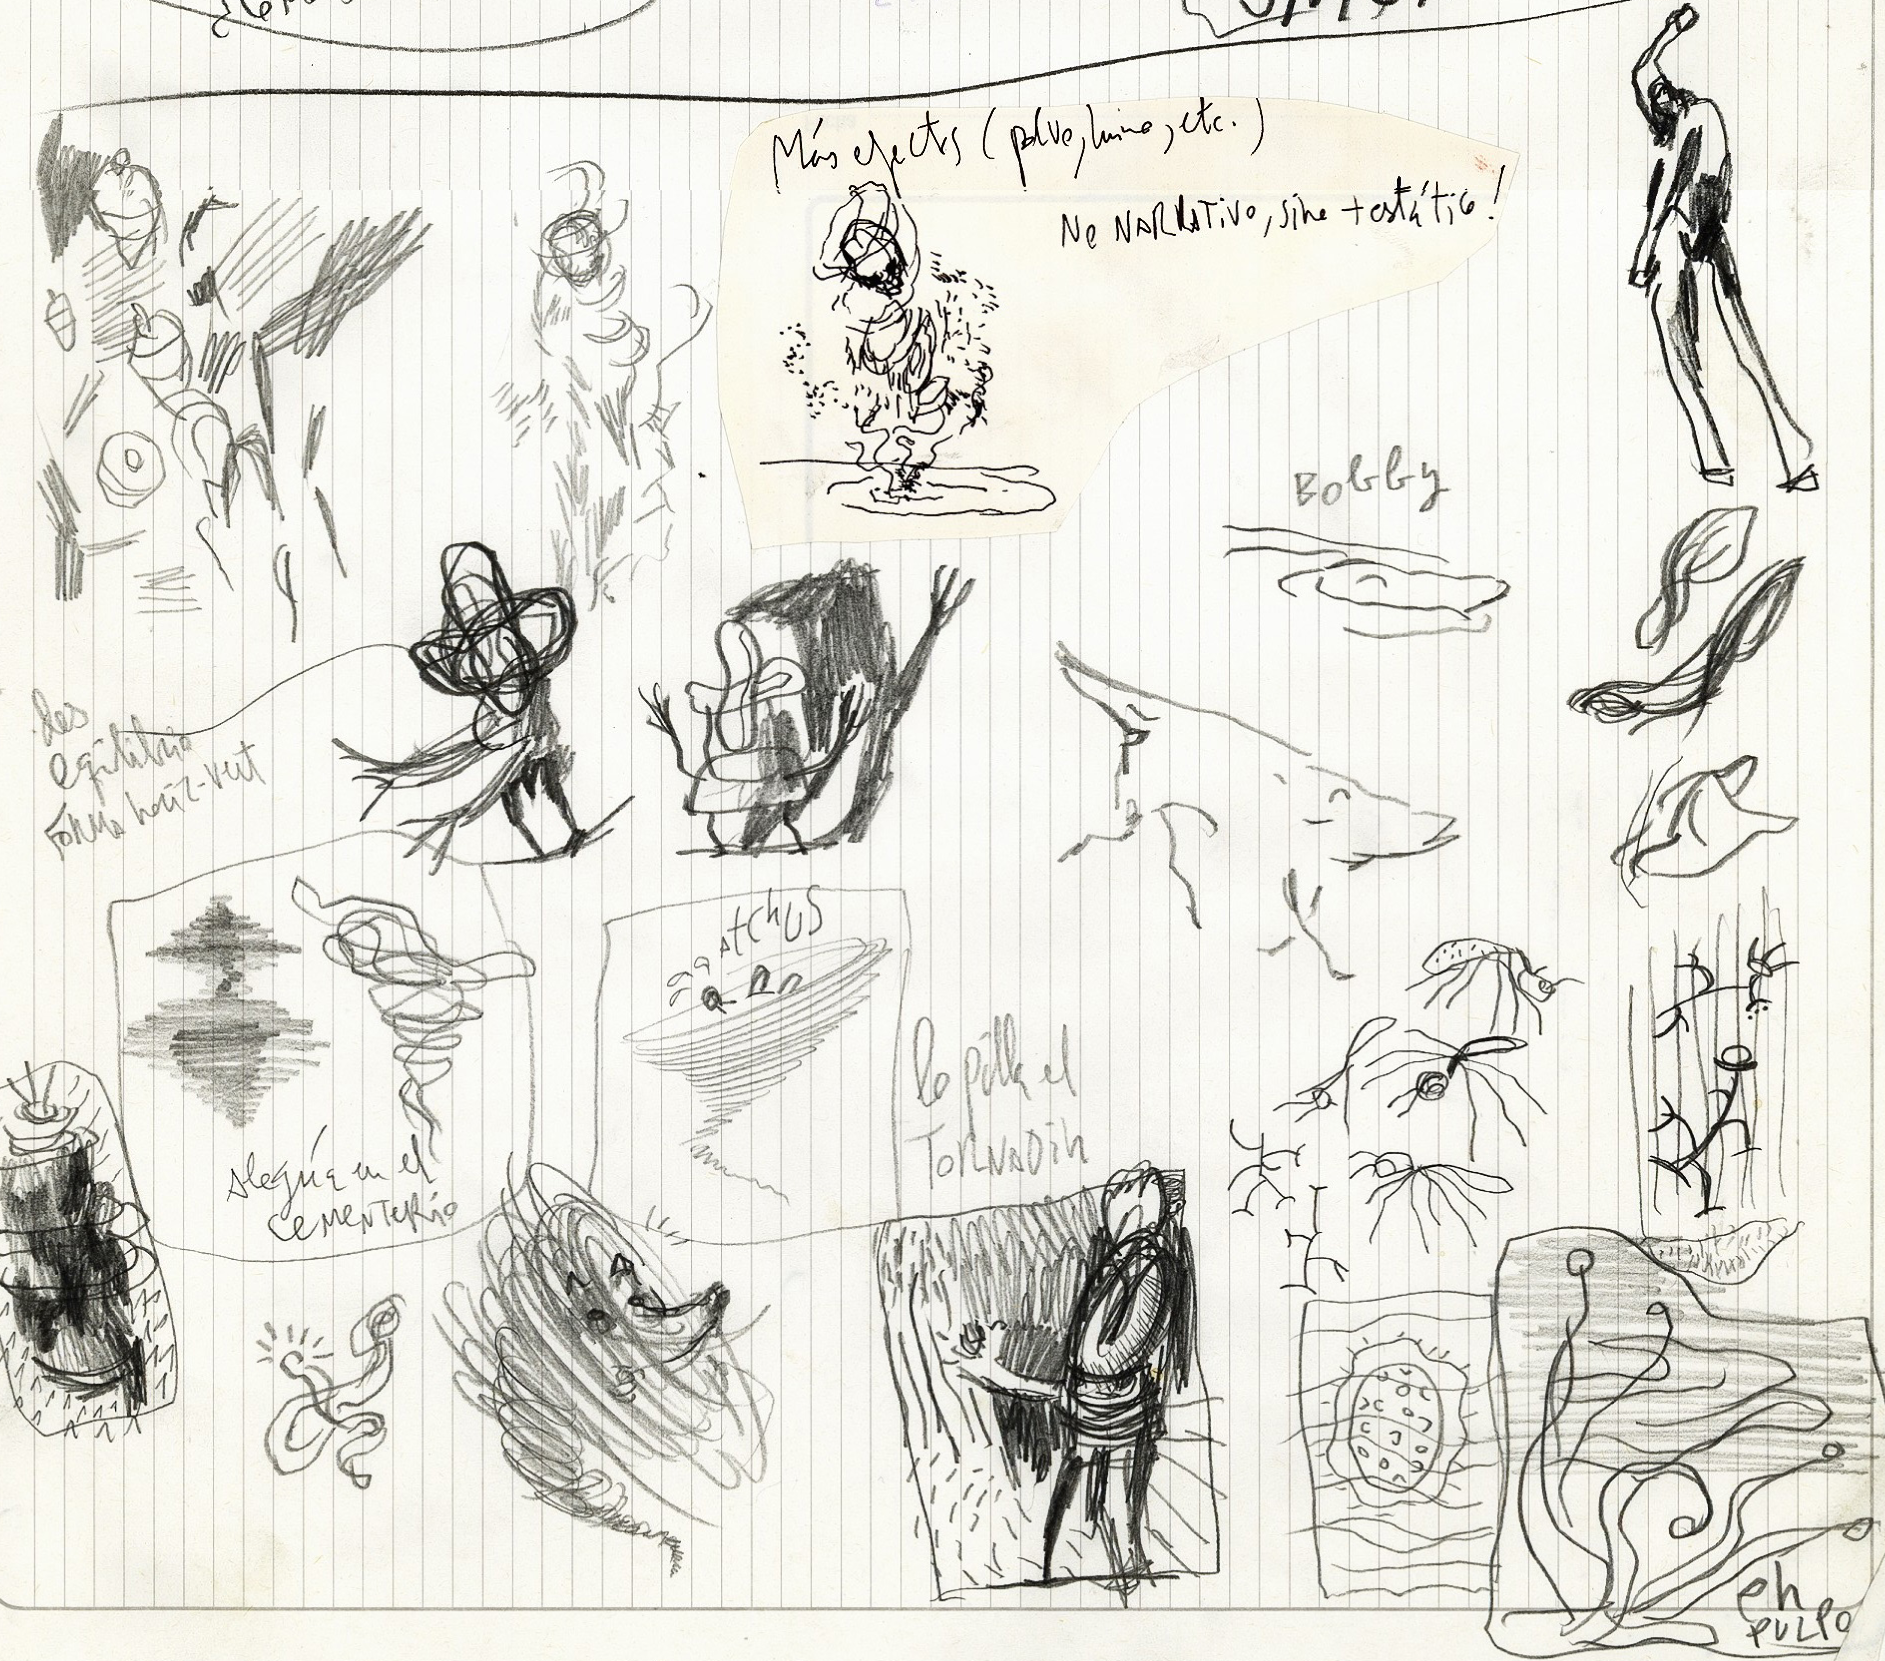 Más efectos (polvo, humo, etc.)
No NARRATIVO, sino + estático!
Bobby
Des
equilibrio
forma horiz-vert
AAATCHUS
lo pilla el
TORNADIN
Alegría en el
CEMENTERIO
eh
PULPO